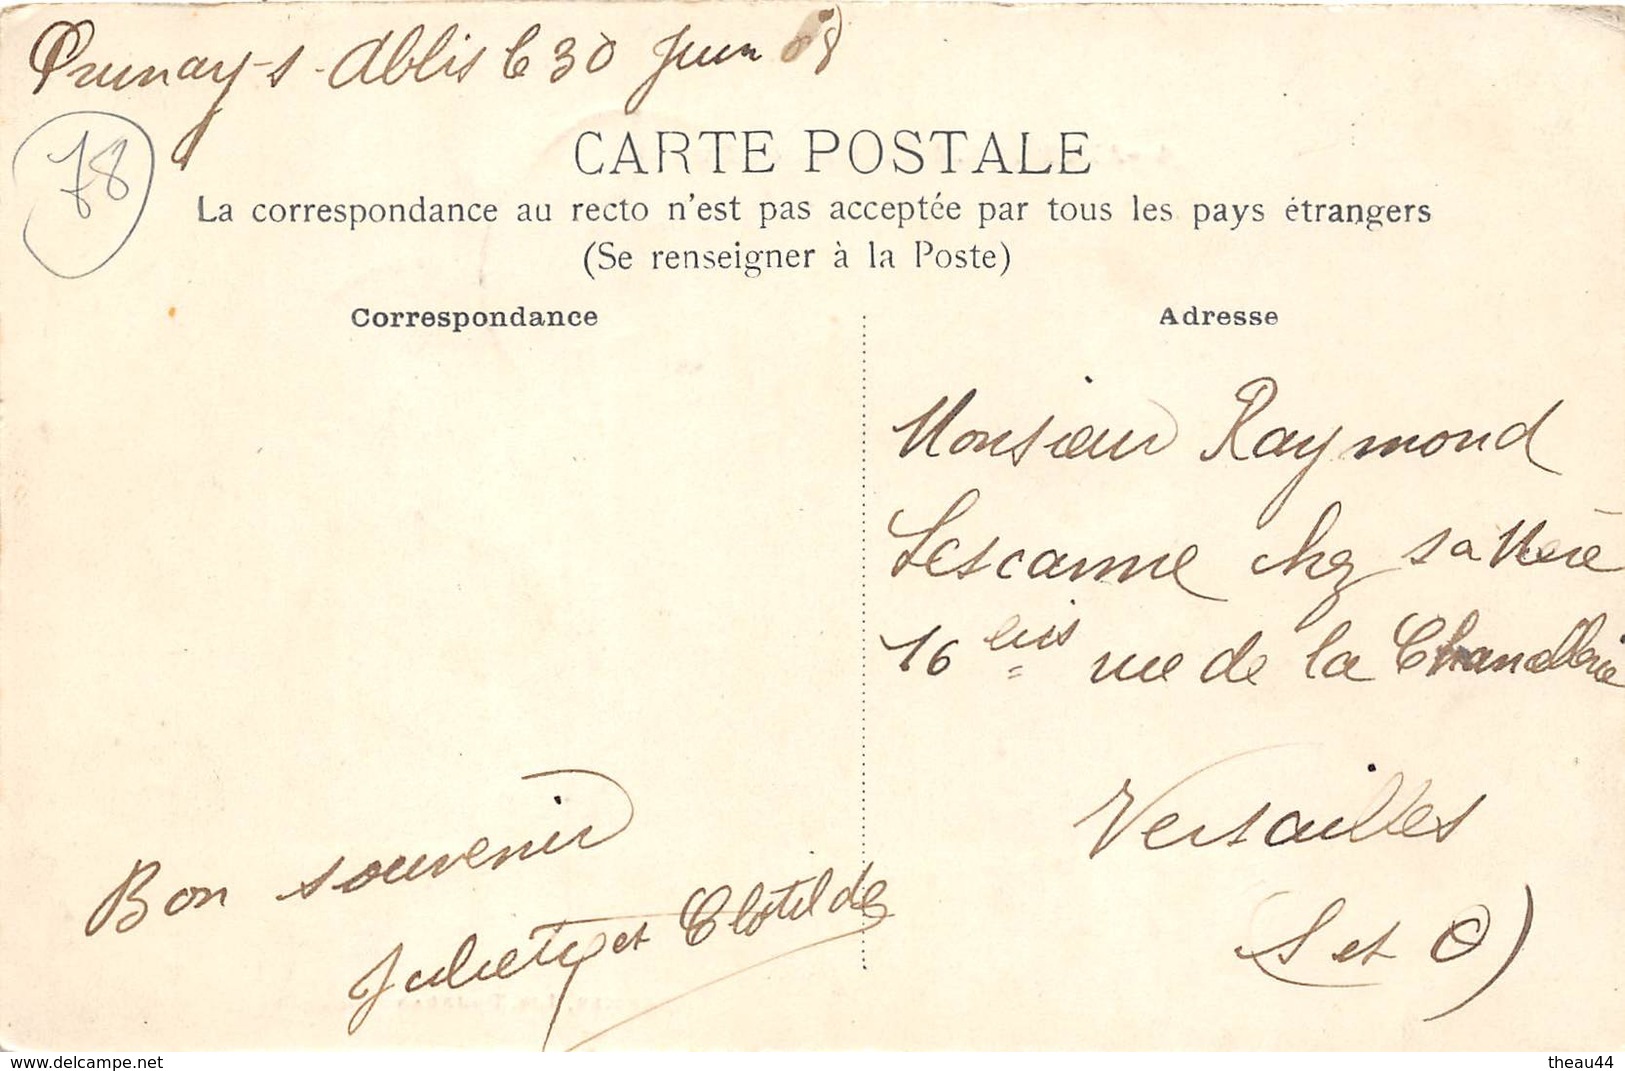 Prunay-s-Ablis le 30 Juin 08
78
CARTE POSTALE
La correspondance au recto n'est pas acceptée par tous les pays étrangers
(Se renseigner à la Poste)
Correspondance
Bon souvenir
Juliette et Clotilde
Adresse
Monsieur Raymond
Lescanne chez sa Mère
16 bis rue de la Chancellerie
Versailles
(S et O)
www.delcampe.net
theau44